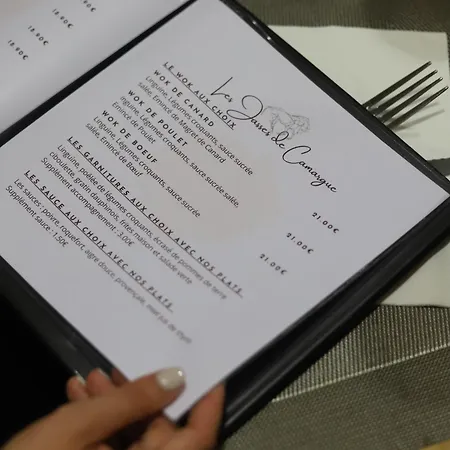 18.90€
18.90€
18.90€
Les Jasses de Camargue
LE WOK AUX CHOIX
WOK DE CANARD
Linguine, Légumes croquants, sauce sucrée
salée, Emincé de Magret de Canard
21.00€
WOK DE POULET
Linguine, Légumes croquants, sauce sucrée salée,
Emincé de Poulet
21.00€
WOK DE BŒUF
Linguine, Légumes croquants, sauce sucrée
salée, Emincé de Bœuf
21.00€
LES GARNITURES AUX CHOIX AVEC NOS PLATS
Linguine, poêlée de légumes croquants, écrasé de pommes de terre
ciboulette, gratin dauphinois, frites maison et salade verte
Supplément accompagnement : 3.00€
LES SAUCE AUX CHOIX AVEC NOS PLATS
Les sauces : poivre, roquefort, aigre douce, provençale, miel jus de thym
Supplément sauce : 1.50€